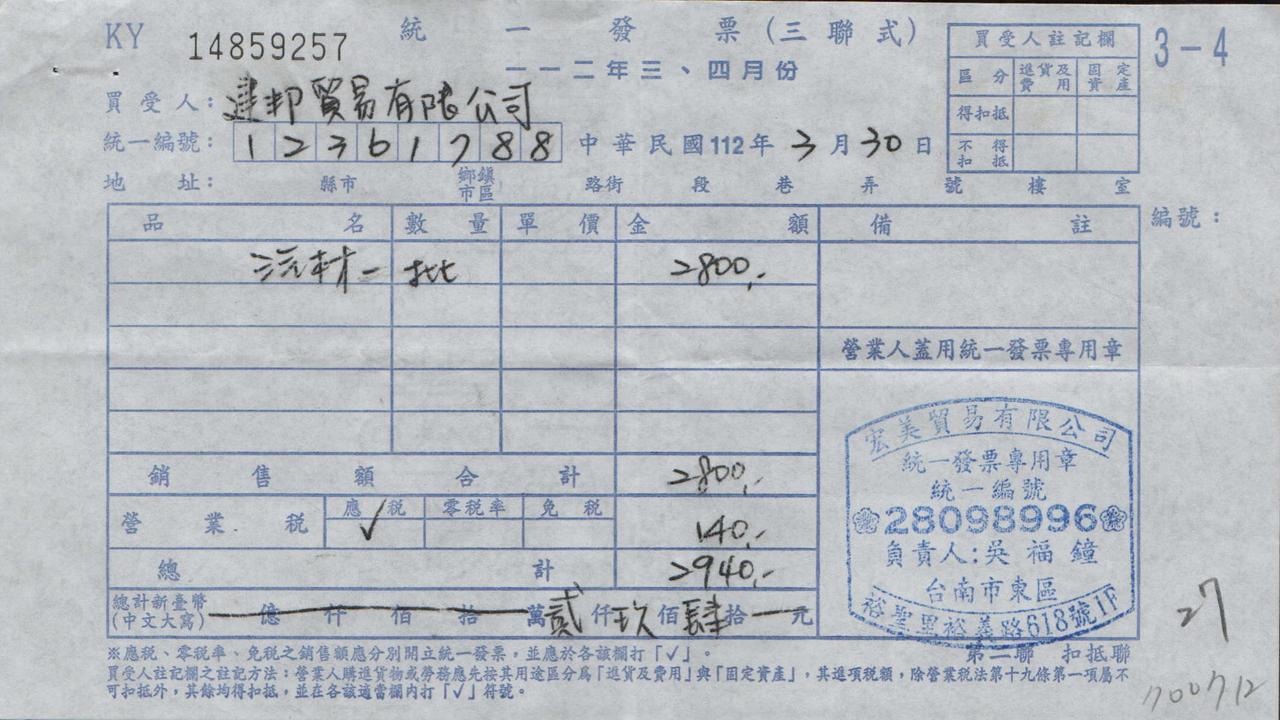 KY 14859257 統一發票(三聯式)
一一二年三、四月份
3-4
買受人註記欄
區分 進貨及費用 固定資產
得扣抵
不得扣抵
買受人: 建邦貿易有限公司
統一編號: 12361788 中華民國112年3月30日
地址: 縣市 鄉鎮市區 路街 段 巷 弄 號 樓 室
品名 數量 單價 金額 備註 編號:
汽材一批 2800.-
營業人蓋用統一發票專用章
銷售額合計 2800.-
營業稅 應稅 ✓ 零稅率 免稅 140.-
總計 2940.-
總計新臺幣(中文大寫) 億 仟 佰 拾 萬 貳 仟 玖 佰 肆 拾 元
宏美貿易有限公司
統一發票專用章
統一編號
28098996
負責人:吳福鐘
台南市東區
裕聖里裕義路618號1F
第二聯 扣抵聯
※應稅、零稅率、免稅之銷售額應分別開立統一發票,並應於各該欄打「✓」。
買受人註記欄之註記方法:營業人購進貨物或勞務應先按其用途區分為「進貨及費用」與「固定資產」,其進項稅額,除營業稅法第十九條第一項屬不
可扣抵外,其餘均得扣抵,並在各該適當欄內打「✓」符號。
27